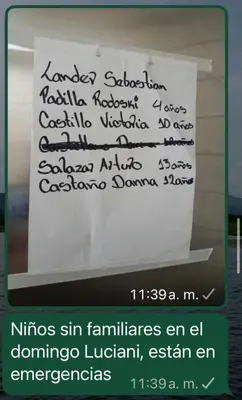 Lander Sebastian
Padilla Rodoski 4 años
Castillo Victoria 10 años
Salazar Arturo 13 años
Castaño Danna 12 años
11:39 a. m.
Niños sin familiares en el
domingo Luciani, están en
emergencias
11:39 a. m.